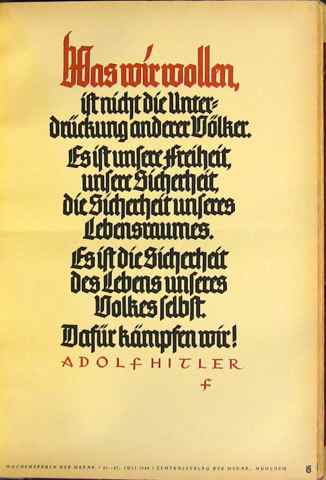 Was wir wollen,
ist nicht die Unter=
drückung anderer Völker.
Es ist unsere Freiheit,
unsere Sicherheit,
die Sicherheit unseres
Lebensraumes.
Es ist die Sicherheit
des Lebens unseres
Volkes selbst.
Dafür kämpfen wir!
ADOLF HITLER
WOCHENSPRUCH DER NSDAP JULI ZENTRALVERLAG DER NSDAP., MÜNCHEN